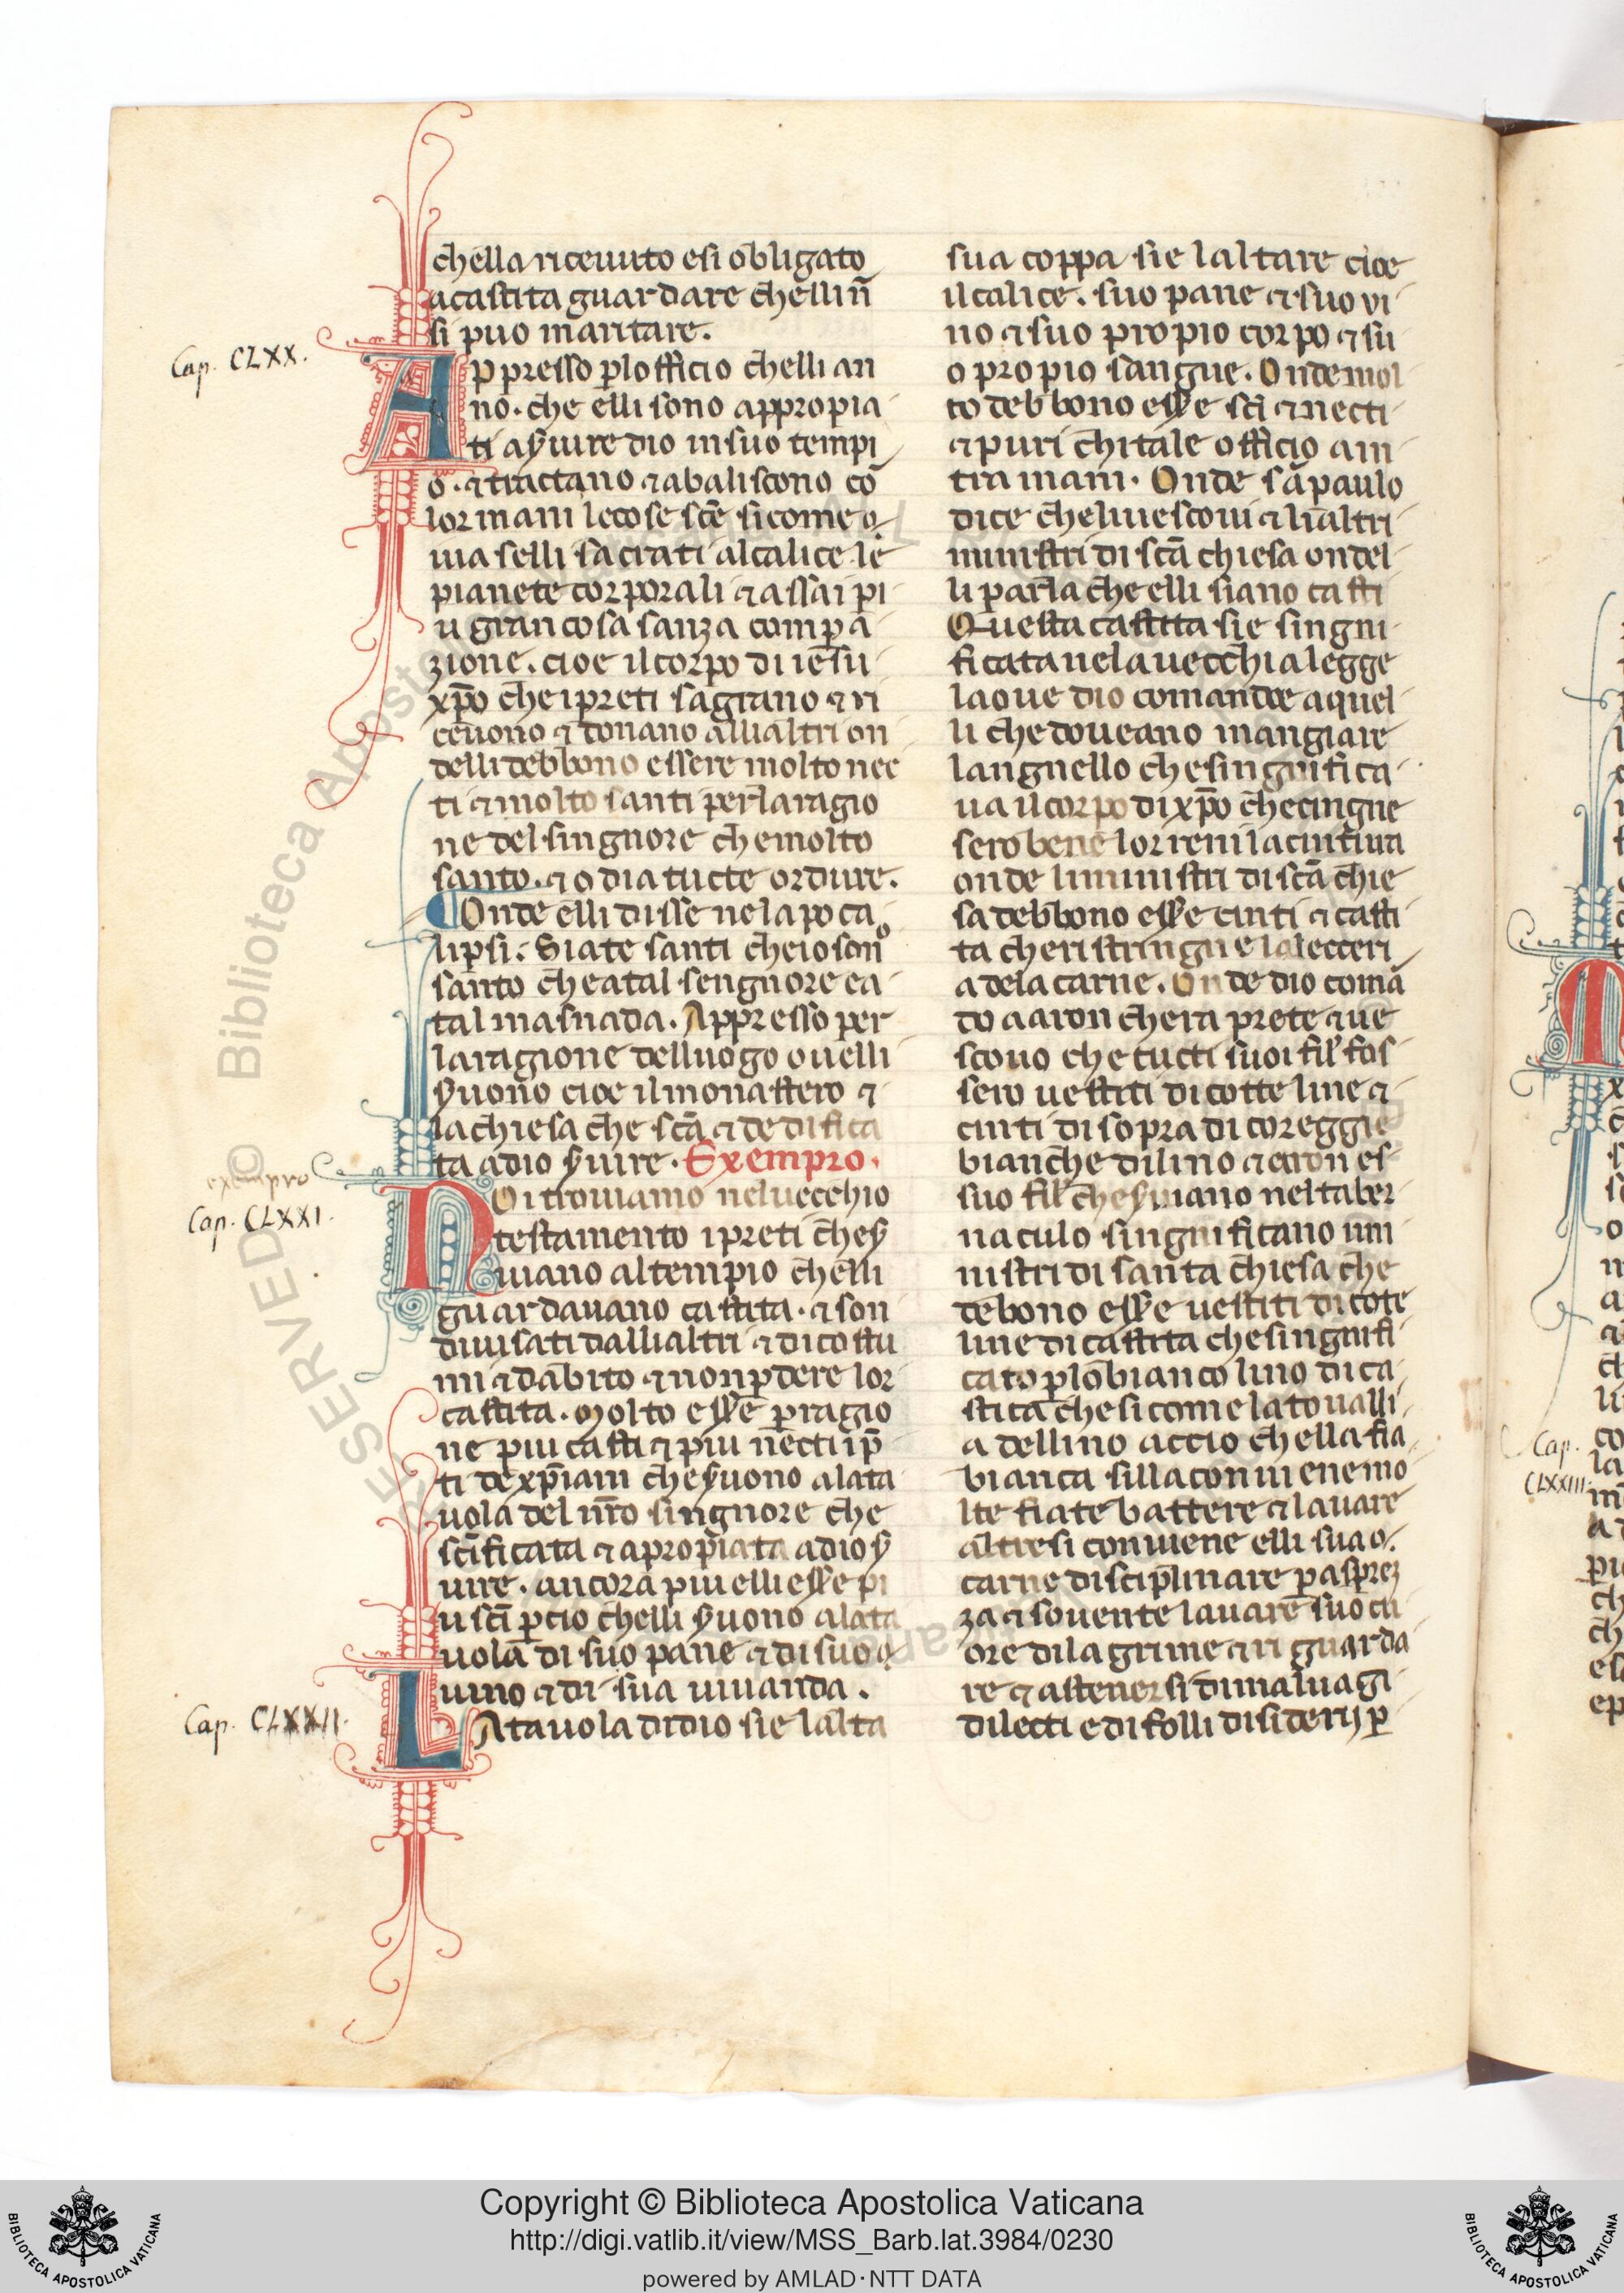 chella riceuuto esi obligato
acastita guardare chelli nͮ
si puo maritare.
Cap. CLXX.
Appresso ꝑlofficio chelli an
no. che elli sono appropia
ti a ẜuire dio in suo tempi
o. ⁊ tractano ⁊ abaliscono cō
lor mani le cose scē̄ si come
uaselli sacrati al calice le
pianete corporali ⁊ assai pi
u gran cosa sanza compā
zione. cioe il corpo di iēsu
xp̄o che ipreti sagrano ⁊ ri
ceuono ⁊ donano alli altri on
delli debbono essere molto nec
ti ⁊ molto santi per la ragio
ne del singnore che molto
santo. ⁊ odia tucte ordure.
Onde elli disse nela poca
lipsi. Siate santi cheio sono
santo che a tal sengnore ea
tal masnada. Appresso per
la ragione delluogo ouelli
ẜuono cioe il monastero ⁊
la chiesa che scā ⁊ dedifica
ta adio ẜuire. Exempro.
exempro
Cap. CLXXI.
Noi trouiamo nel uecchio
testamento i preti che ẜ
uiano al tempio chelli
guardauano castita. ⁊ son
diuisati dalli altri ⁊ di costu
mi ⁊ dabito ⁊ non ꝑdere lor
castita. Molto esse ꝑ ragio
ne piu casti ⁊ piu necti i p̄
ti de xp̄iani che ẜuono a la ta
uola del nr̄o singnore che
sc̄ificata ⁊ apropiata adio ẜ
uire. ancora piu elli esse pi
u sc̄i ꝑcio chelli ẜuono a la ta
uola di suo pane ⁊ di suo
uino ⁊ di sua uiuanda.
Cap. CLXXII.
La tauola didio sie lalta
sua coppa sie laltare cioe
il calice. suo pane ⁊ suo vi
no ⁊ suo propio corpo ⁊ su
o propio sangue. Onde mol
to debbono esse sc̄i ⁊ necti
⁊ puri chi tale officio an
tra mani. Onde sā paulo
dice cheli uescoui ⁊ li altri
ministri di scā chiesa ondel
li parla che elli siano casti
Questa castita sie singni
ficata nela uecchia legge
la oue dio comandoe a quel
li che doueano mangiare
langnello che singnifica
ua il corpo di xp̄o che cingne
sero bene lor reni la cintura
onde li ministri di scā chie
sa debbono esse cinti ⁊ casti
ta che ristringne la lecceri
a dela carne. Onde dio comā
do a aron chera prete ⁊ ue
scouo che tucti suoi fil fos
sero uestiti di cotte line ⁊
cinti di sopra di coreggie
bianche di lino ⁊ aron es
suo fil che ẜuiano nel taber
naculo singnificano i mi
nistri di santa chiesa che
debono esse uestiti di cote
line di castita che singnifi
cato ꝑ lo bianco lino di ca
stita che si come la touagli
a dellino accio chella sia
bianca silla conuiene mo
lte fiate battere ⁊ lauare
altresi conuiene elli sua
carne disciplinare ꝑ asprez
za ⁊ souente lauare suo cu
ore di lagrime ⁊ riguarda
re ⁊ astenersi di maluagi
dilecti e di folli disiderij ꝑ
Cap.
CLXXIII
Copyright © Biblioteca Apostolica Vaticana
http://digi.vatlib.it/view/MSS_Barb.lat.3984/0230
powered by AMLAD·NTT DATA
BIBLIOTECA APOSTOLICA VATICANA
BIBLIOTECA APOSTOLICA VATICANA